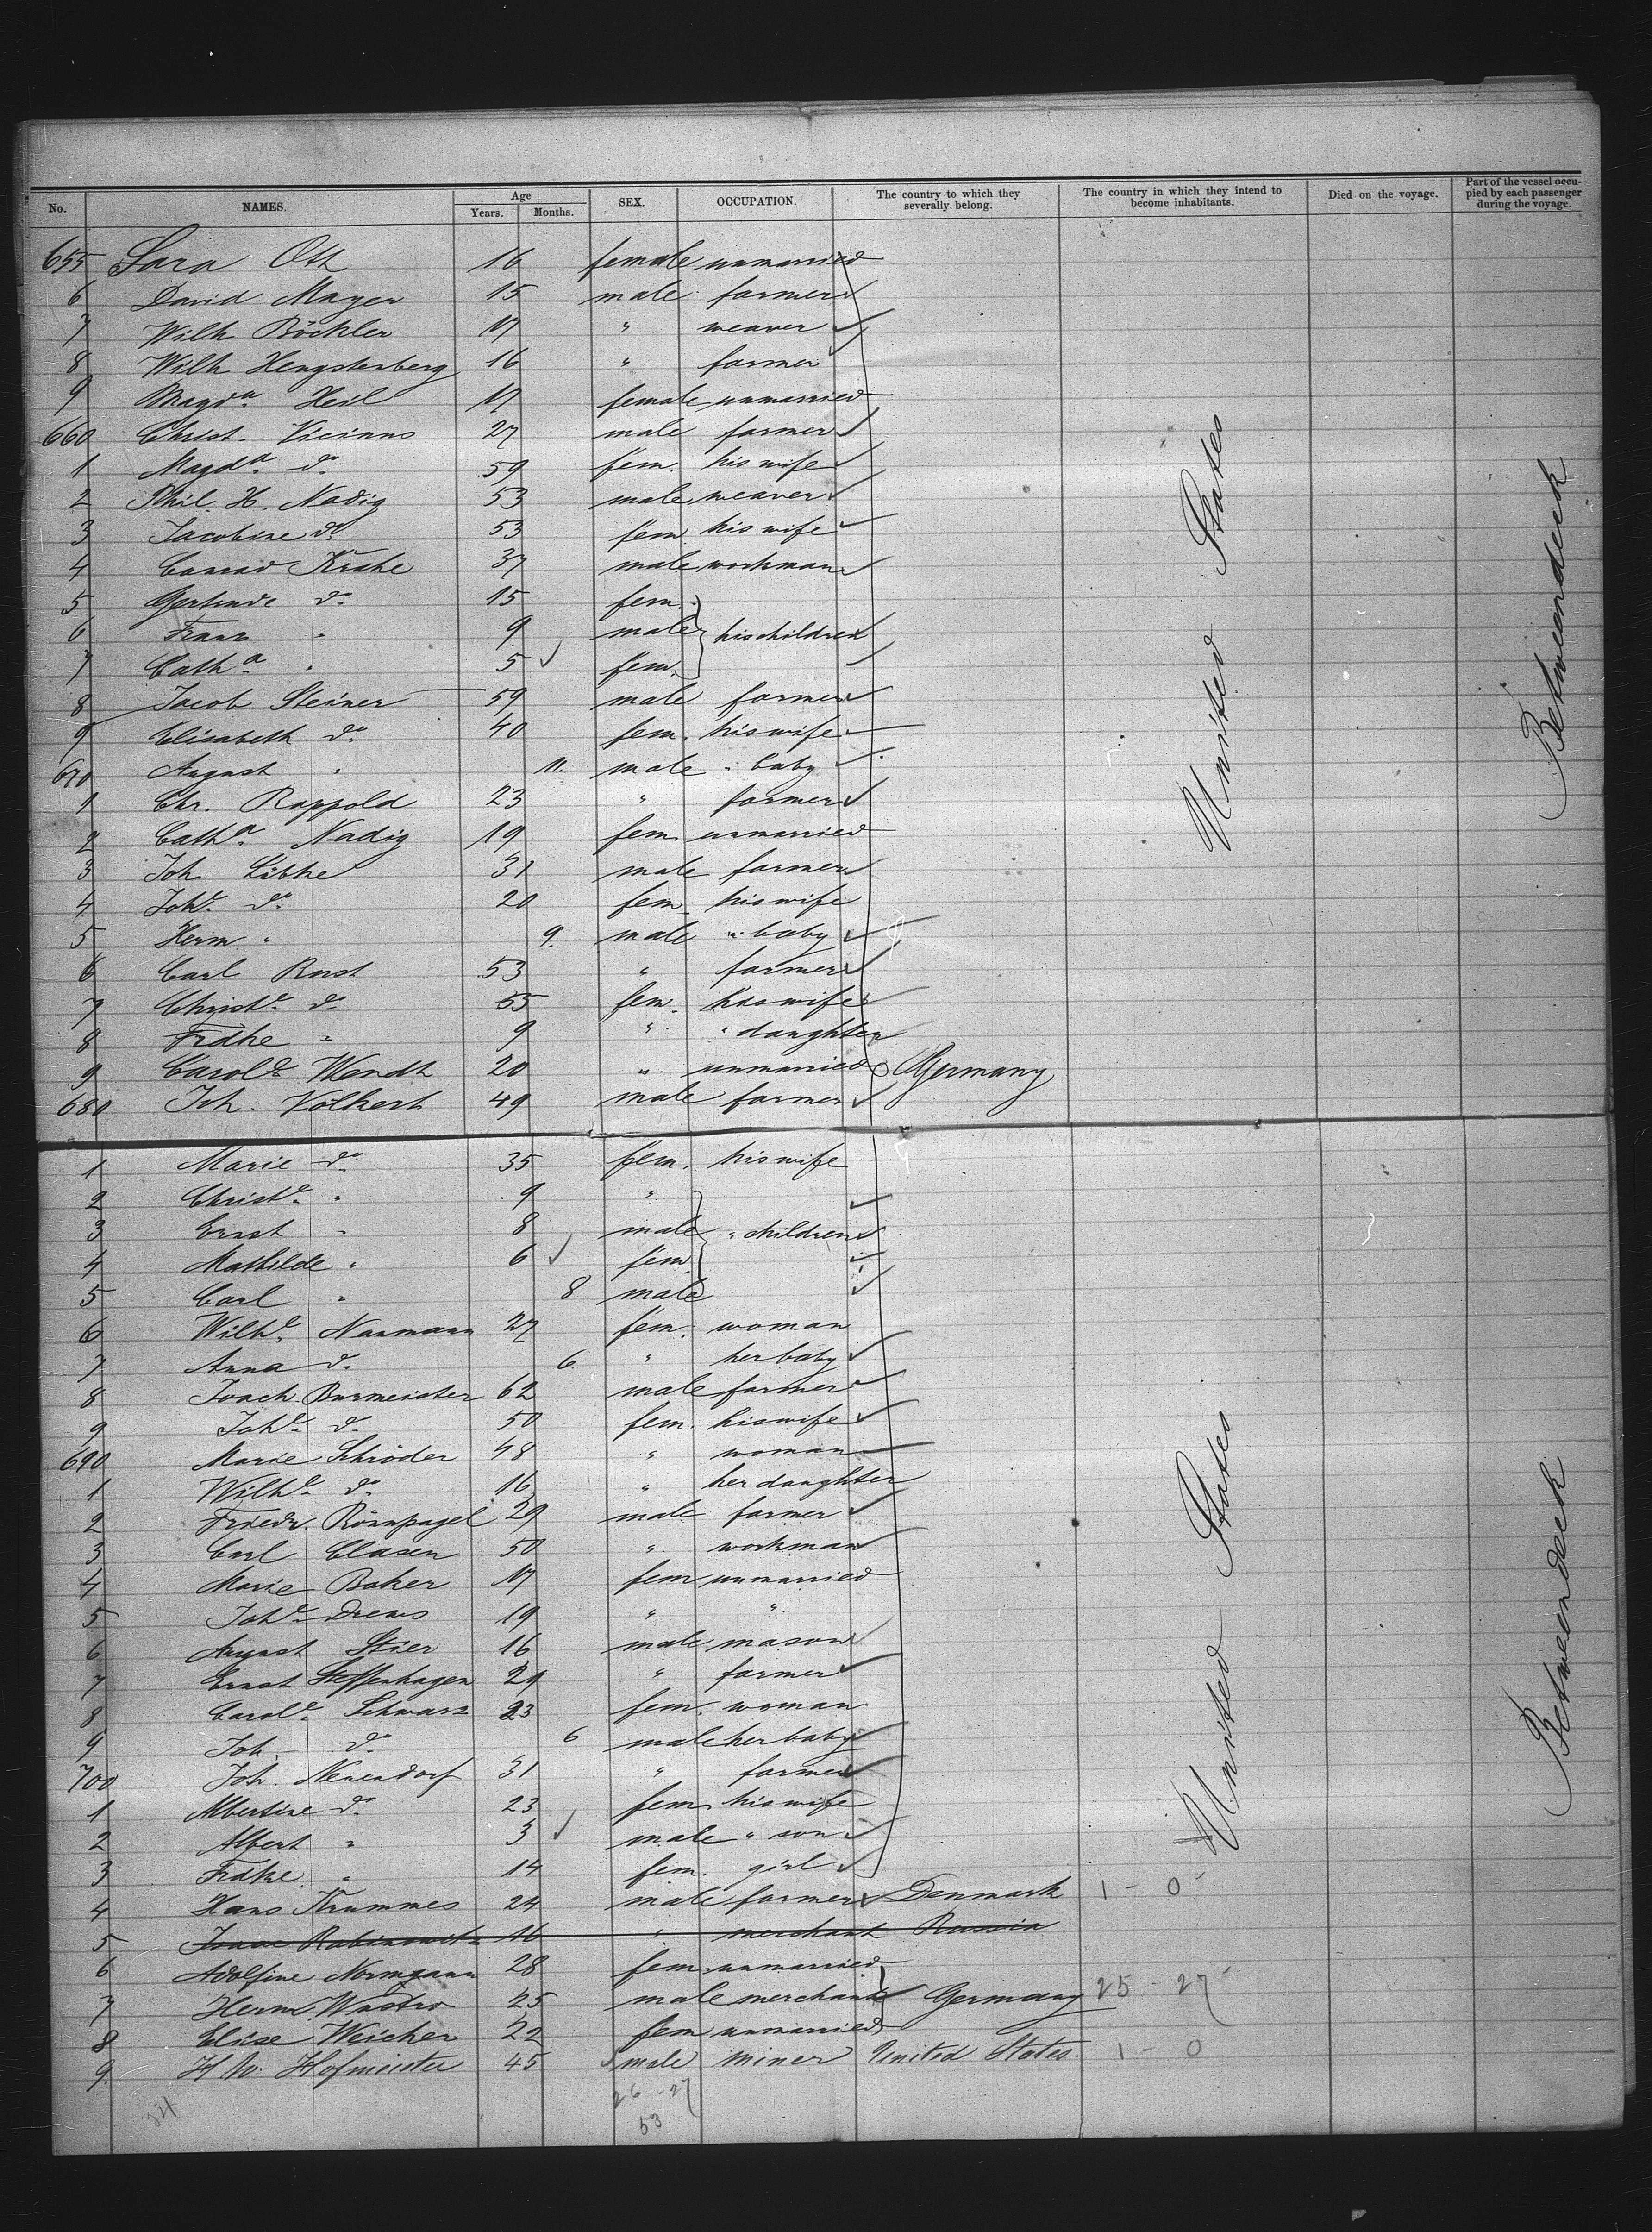 No. NAMES. Age Years. Months. SEX. OCCUPATION. The country to which they severally belong. The country in which they intend to become inhabitants. Died on the voyage. Part of the vessel occupied by each passenger during the voyage.
655 Sara Ott 16 female unmarried
6 David Mayer 15 male farmer
7 Wilh Böckler 17 " weaver
8 Wilh Hengstenberg 16 " farmer
9 Magda. Heil 17 female unmarried
660 Christ. 27 male farmer
1 Magda. do. 59 fem. his wife
2 Phil. H. Nadig 53 male weaver
3 Jacobine do. 53 fem. his wife
4 Conrad Krahe 37 male workman
5 Gertrude do. 15 fem.
6 Franz " 9 male his children
7 Catha. " 5 fem.
8 Jacob Steiner 59 male farmer
9 Elisabeth do. 40 fem. his wife
670 August " 11. male " baby
1 Chr. Rappold 23 " farmer
2 Catha. Nadig 19 fem. unmarried
3 Joh. Libke 31 male farmer
4 Johe. do. 20 fem. his wife
5 Herm. " 9. male " baby
6 Carl Rust 53 " farmer
7 Christe. do. 55 fem. his wife
8 Fridke " 9 " " daughter
9 Carole. Wendt 20 " unmarried Germany
680 Joh. Volkert 49 male farmer
United States
Betweendeck
1 Marie do. 35 fem. his wife
2 Christe. " 9 "
3 Ernst " 8 male " children
4 Mathilde " 6 fem.
5 Carl " 8 male
6 Wilhe. Naumann 27 fem. woman
7 Anna do. 6 " her baby
8 Joach. Burmeister 62 male farmer
9 Johe. do. 50 fem. his wife
690 Marie Schröder 48 " woman
1 Wilhe. do. 16 " her daughter
2 Friedr. Rönnpagel 29 male farmer
3 Carl Clasen 50 " workman
4 Marie Baker 17 fem unmarried
5 Johe. Drews 19 " "
6 August Stier 16 male mason
7 Ernst Steffenhagen 29 " farmer
8 Carole. Schwarz 23 fem. woman
9 Joh. do. 6 male her baby
700 Joh. Neuendorf 31 " farmer
1 Albertine do. 23 fem. his wife
2 Albert " 3 male " son
3 Fridke. " 14 fem. girl
4 Hans Krummes 24 male farmer Denmark 1 - 0
5 Isaac Rabinowitz 16 " merchant Russia
6 Adolfine 28 fem. unmarried
7 Herm. 25 male merchant Germany 25 - 27
8 Elise Weicher 22 fem unmarried
9. H. W. Hofmeister 45 male miner United States 1 - 0
United States
Betweendeck
24 26 - 27
53